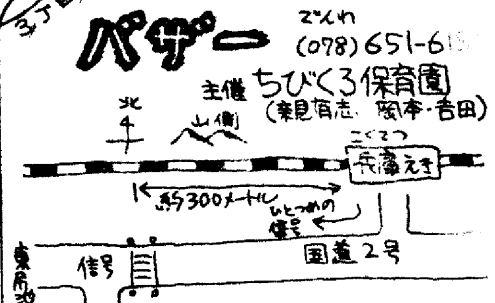 バザー
でんわ
(078)651-6
主催 ちびくろ保育園
(親見有志、岡本・吉田)
北
山側
こくてつ
兵庫えき
約300メートル
ひとつめの
信号
国道2号
信号
東尻池